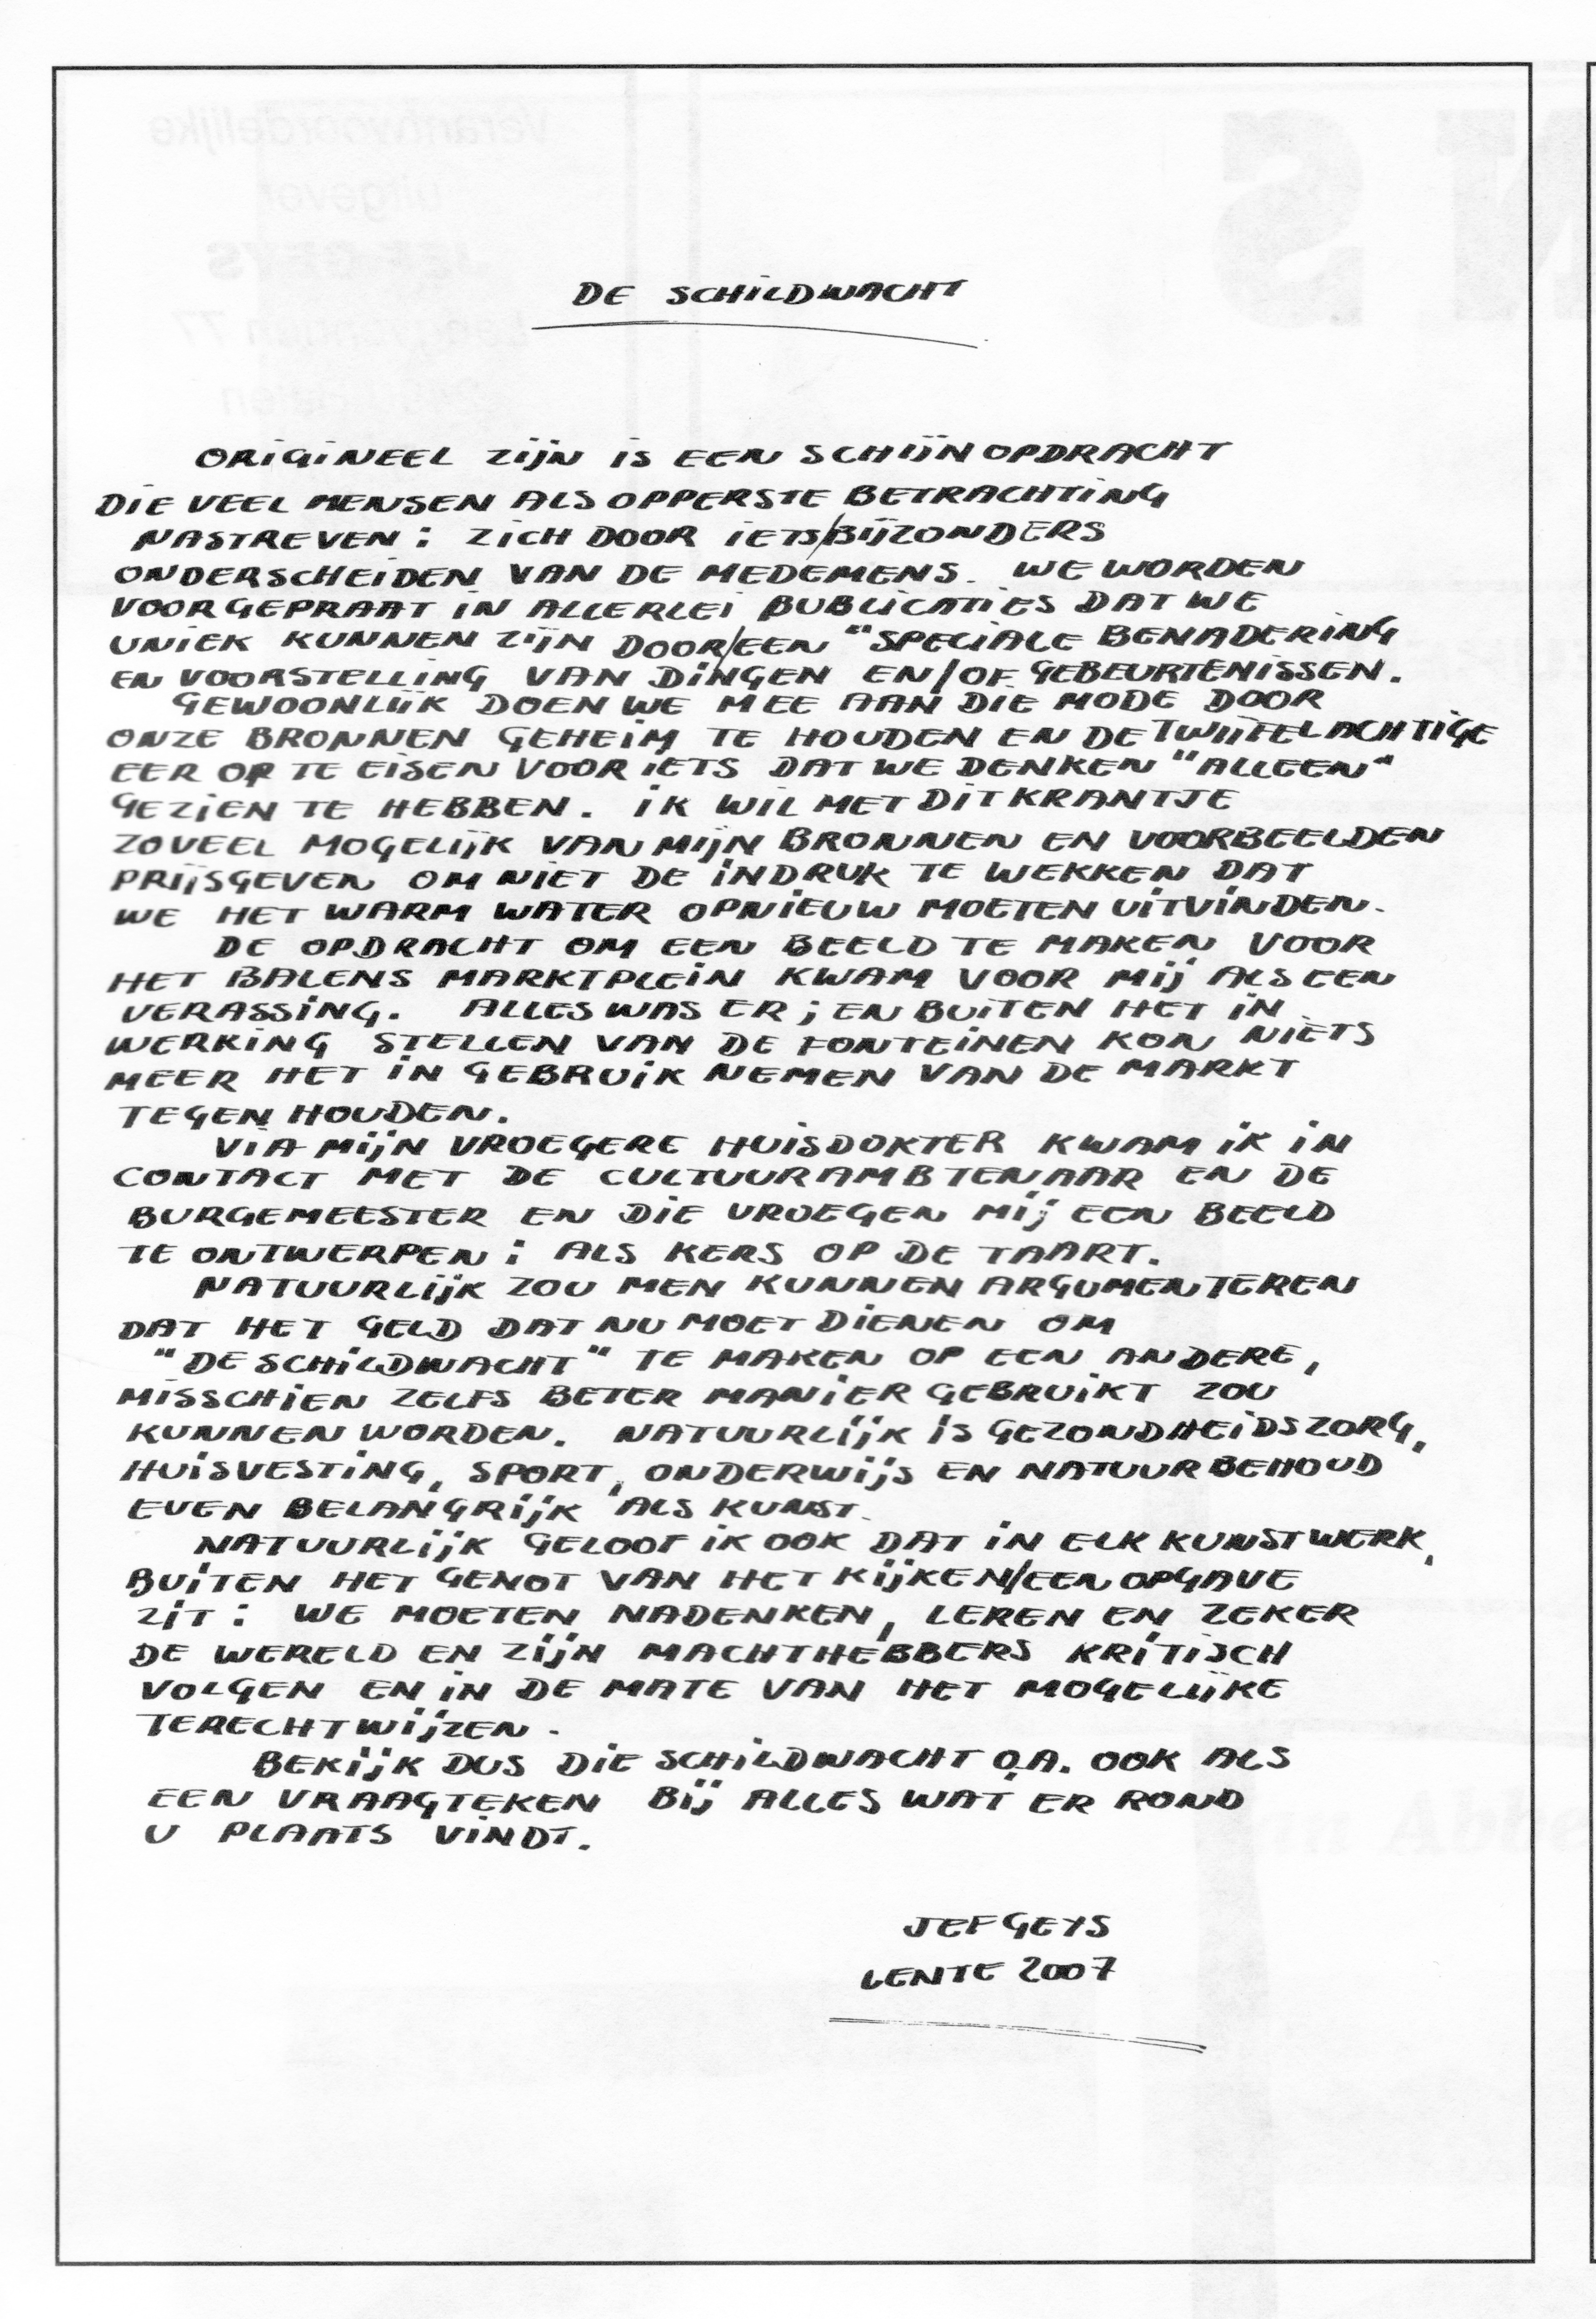 DE SCHILDWACHT
ORIGINEEL ZIJN IS EEN SCHIJNOPDRACHT
DIE VEEL MENSEN ALS OPPERSTE BETRACHTING
NASTREVEN : ZICH DOOR IETS/BIJZONDERS
ONDERSCHEIDEN VAN DE MEDEMENS. WE WORDEN
VOORGEPRAAT IN ALLERLEI PUBLICATIES DAT WE
UNIEK KUNNEN ZIJN DOOR/EEN "SPECIALE BENADERING
EN VOORSTELLING VAN DINGEN EN/OF GEBEURTENISSEN.
GEWOONLIJK DOEN WE MEE AAN DIE MODE DOOR
ONZE BRONNEN GEHEIM TE HOUDEN EN DE TWIJFELACHTIGE
EER OP TE EISEN VOOR IETS DAT WE DENKEN "ALLEEN"
GEZIEN TE HEBBEN. IK WIL MET DIT KRANTJE
ZOVEEL MOGELIJK VAN MIJN BRONNEN EN VOORBEELDEN
PRIJSGEVEN OM NIET DE INDRUK TE WEKKEN DAT
WE HET WARM WATER OPNIEUW MOETEN UITVINDEN.
DE OPDRACHT OM EEN BEELD TE MAKEN VOOR
HET BALENS MARKTPLEIN KWAM VOOR MIJ ALS EEN
VERASSING. ALLES WAS ER ; EN BUITEN HET IN
WERKING STELLEN VAN DE FONTEINEN KON NIETS
MEER HET IN GEBRUIK NEMEN VAN DE MARKT
TEGEN HOUDEN.
VIA MIJN VROEGERE HUISDOKTER KWAM IK IN
CONTACT MET DE CULTUURAMBTENAAR EN DE
BURGEMEESTER EN DIE VROEGEN MIJ EEN BEELD
TE ONTWERPEN : ALS KERS OP DE TAART.
NATUURLIJK ZOU MEN KUNNEN ARGUMENTEREN
DAT HET GELD DAT NU MOET DIENEN OM
"DE SCHILDWACHT" TE MAKEN OP EEN ANDERE,
MISSCHIEN ZELFS BETER MANIER GEBRUIKT ZOU
KUNNEN WORDEN. NATUURLIJK IS GEZONDHEIDSZORG,
HUISVESTING, SPORT, ONDERWIJS EN NATUURBEHOUD
EVEN BELANGRIJK ALS KUNST.
NATUURLIJK GELOOF IK OOK DAT IN ELK KUNSTWERK,
BUITEN HET GENOT VAN HET KIJKEN/EEN OPGAVE
ZIT : WE MOETEN NADENKEN, LEREN EN ZEKER
DE WERELD EN ZIJN MACHTHEBBERS KRITISCH
VOLGEN EN IN DE MATE VAN HET MOGELIJKE
TERECHTWIJZEN.
BEKIJK DUS DIE SCHILDWACHT O.A. OOK ALS
EEN VRAAGTEKEN BIJ ALLES WAT ER ROND
U PLAATS VINDT.
JEF GEYS
LENTE 2007